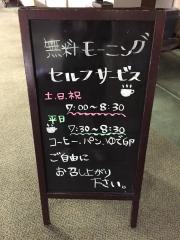 無料モーニング
セルフサービス
土、日、祝
7:00〜8:30
平日
7:30〜8:30
コーヒー、パン、ゆで卵
ご自由に
お召し上がり
下さい。